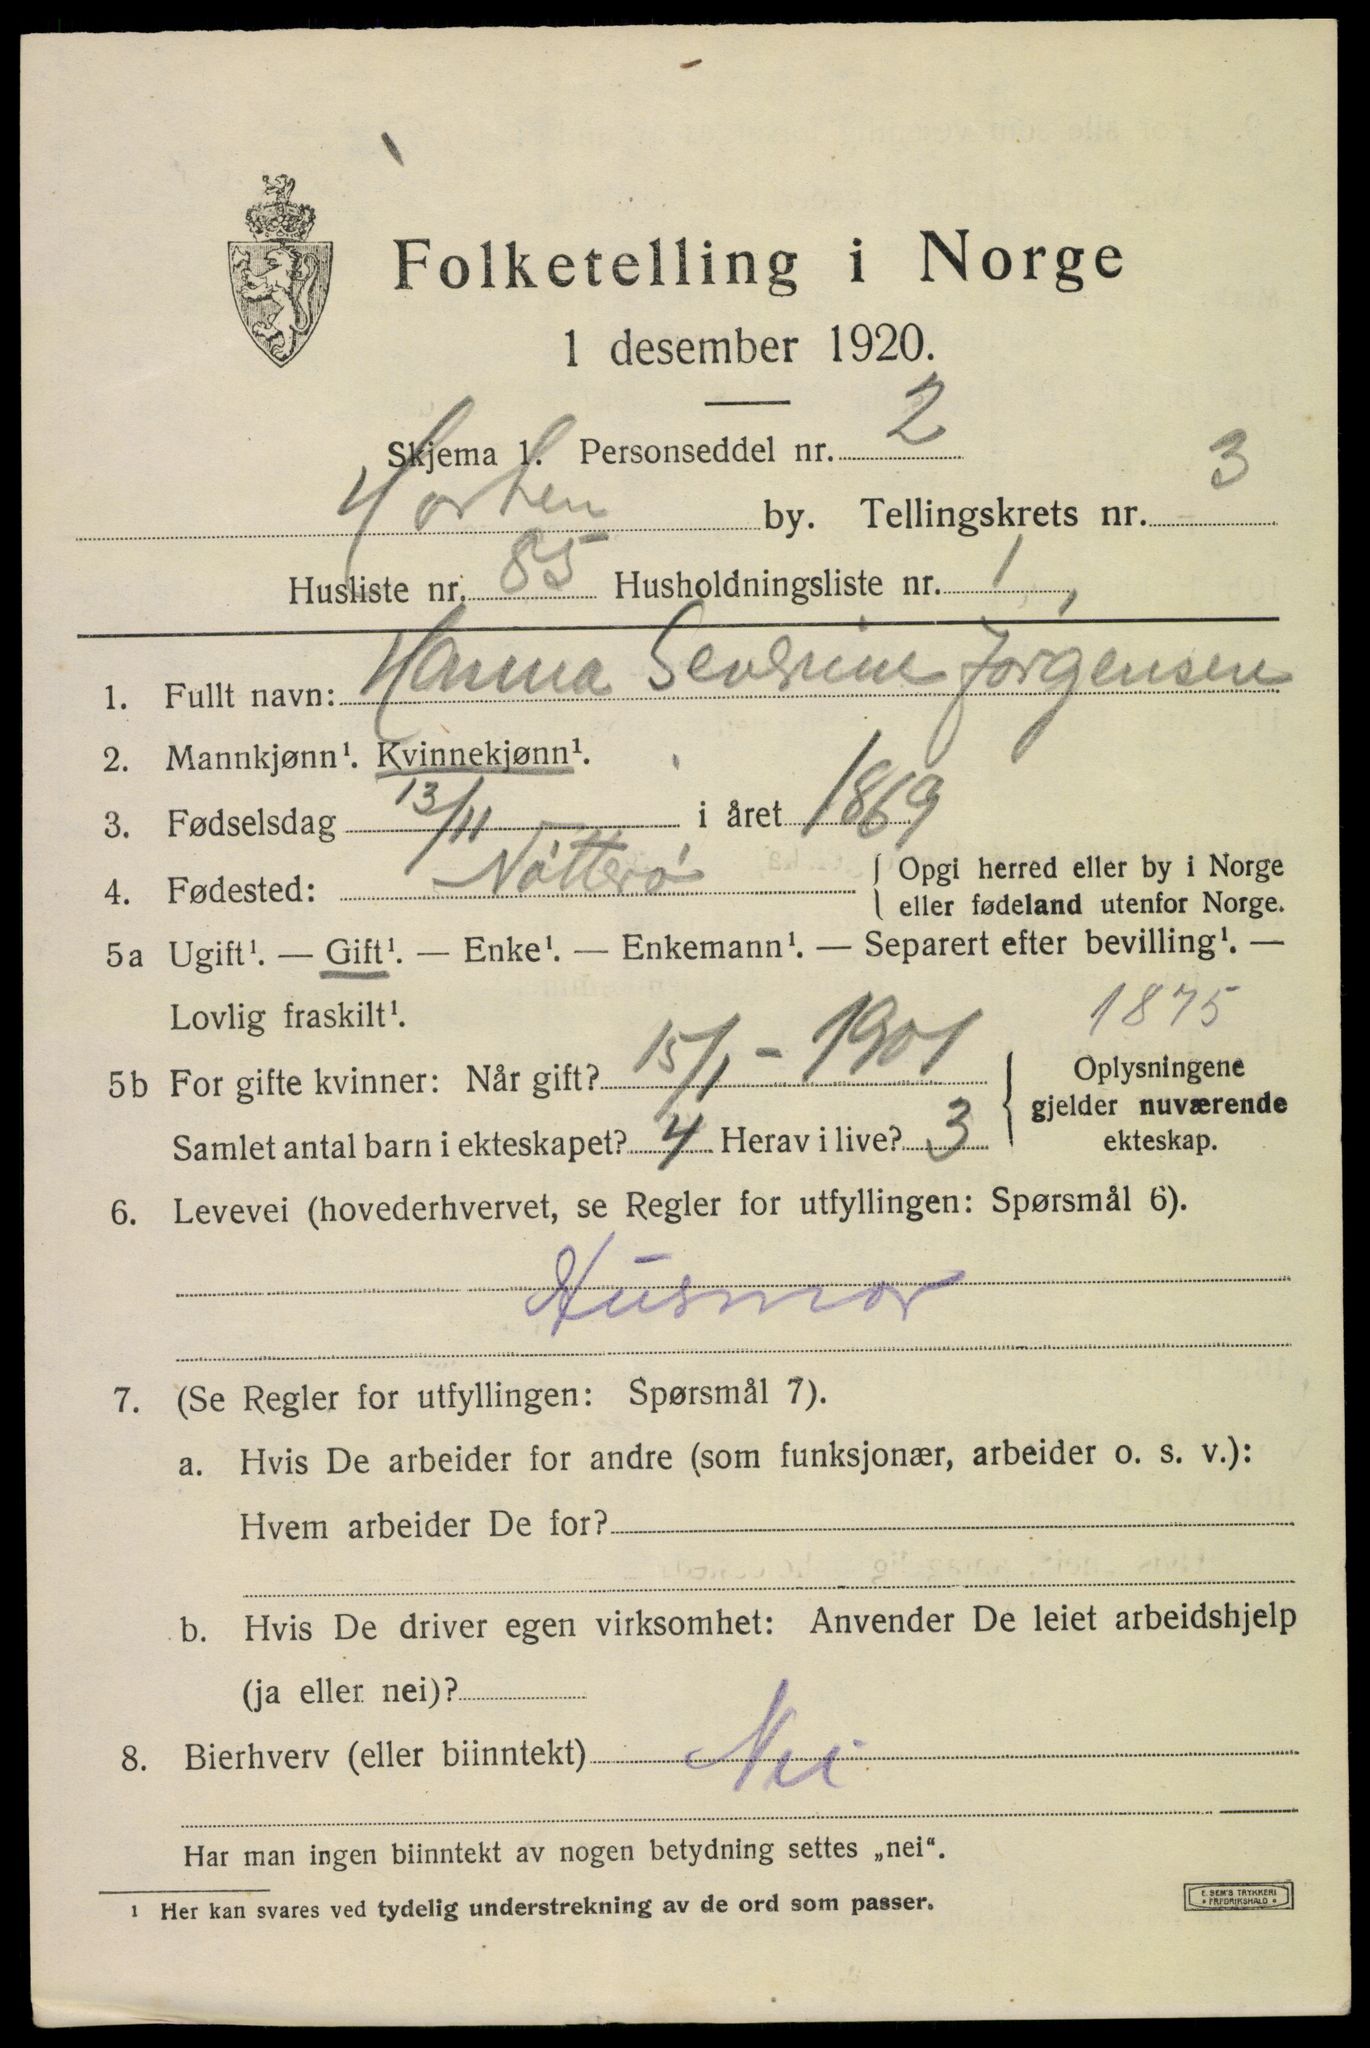 Folketelling i Norge
1 desember 1920.
Skjema 1. Personseddel nr. 2
Horten by. Tellingskrets nr. 3
Husliste nr. 85 Husholdningsliste nr. 1
1. Fullt navn: Hanna Severine Jörgensen
2. Mannkjønn¹. Kvinnekjønn¹.
3. Fødselsdag 13/11 i året 1869
4. Fødested: Nötterö { Opgi herred eller by i Norge
eller fødeland utenfor Norge.
5a Ugift¹. — Gift¹. — Enke¹. — Enkemann¹. — Separert efter bevilling¹. —
Lovlig fraskilt¹. 1875
5b For gifte kvinner: Når gift? 15/1 - 1901 { Oplysningene
gjelder nuværende
Samlet antal barn i ekteskapet? 4 Herav i live? 3 ekteskap.
6. Levevei (hovederhvervet, se Regler for utfyllingen: Spørsmål 6).
Husmor
7. (Se Regler for utfyllingen: Spørsmål 7).
a. Hvis De arbeider for andre (som funksjonær, arbeider o. s. v.):
Hvem arbeider De for?
b. Hvis De driver egen virksomhet: Anvender De leiet arbeidshjelp
(ja eller nei)?
8. Bierhverv (eller biinntekt) Nei
Har man ingen biinntekt av nogen betydning settes „nei“.
¹ Her kan svares ved tydelig understrekning av de ord som passer.
E. SEM'S TRYKKERI
FREDRIKSHALD